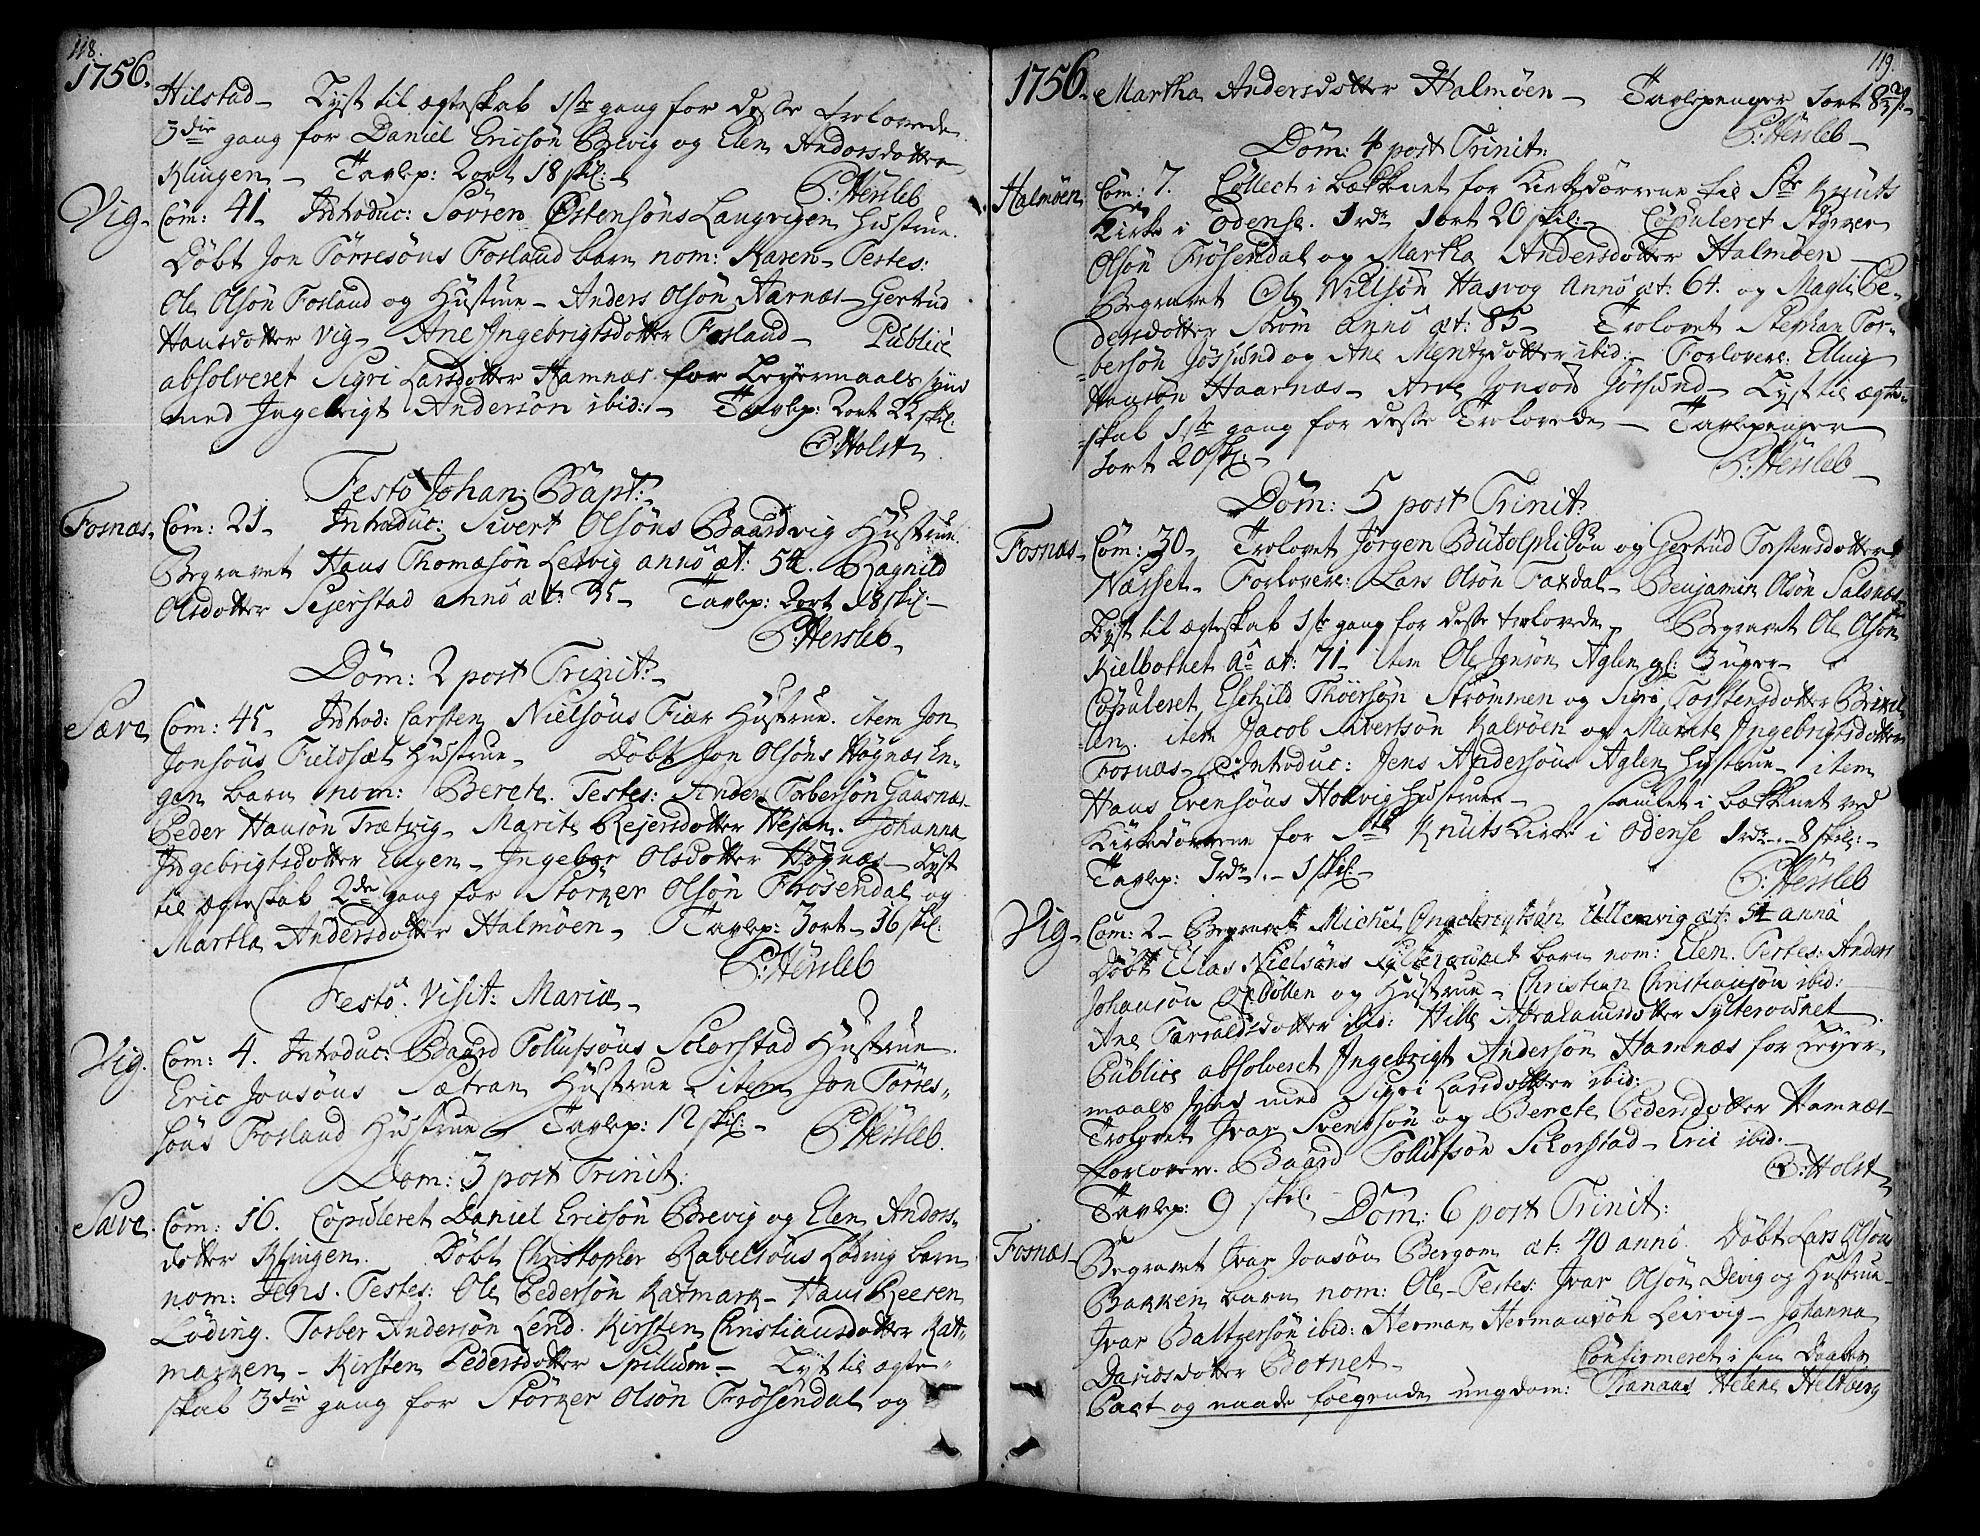 118.
1756.
Hilstad - Lyst til ægteskab 1ste gang for desse trolovede
3die gang for Daniel Ericsøn Brevig og Elen Andorsdotter
Klingen - Tavlep: 2ort 18 skil: -
P: Hersleb
Vig - Com: 41 - Introduc: Sövren Østensöns Langvigen Hustrue.
Döbt Jon Törresöns Fosland barn nom: Karen - Testes:
Ole Olsön Fosland og Hustrue - Anders Olsön Aarnæs - Gertrud
Hansdotter Vig - Ane Ingebrigtsdotter Fosland - Publicè
absolveret Sigri Larsdotter Hamnæs for Leyermaals synd
med Ingebrigt Andersön ibid: - Tavlep: 2ort 22 skil:
C: Holst
Festo Johan: Bapt: -
Fosnæs. Com: 21 - Introduc: Sivert Olsöns Baardvig Hustrue.
Begravet Hans Thomæsön Leivig anno æt: 54. Ragnild
Olsdotter Sejerstad anno æt: 35 - Tavlep: 2ort 18 skil: -
P: Hersleb -
Dom: 2 post Trinit: -
Sævr Com: 45 - Introd: Carsten Nielsöns Fiær Hustrue. item Jon
Jonsöns Fieldsæt Hustrue - Döbt Jon Olsöns Högnæs En-
gen barn nom: Berete. Testes: Anders Torbersön Gaasnæs -
Peder Hansön Trætvig - Marite Rejersdotter Vejan. Johanna
Ingebrigtsdotter Engen - Ingebor Olsdotter Högnæs - Lyst
til ægteskab 2den gang for Störker Olsön Frösendal og
Martha Andersdotter Halmöen - Tavlep: 3ort - 16 skil:
P: Hersleb
Festo Visit: Mariæ -
Vig. Com: 4. Introduc: Baard Tollufsöns Schorstad Hustrue.
Eric Jonsöns Sætran Hustrue - item Jon Törres-
söns Fosland Hustrue Tavlep: 12 skil: -
P Hersleb.
Dom: 3 post Trinit:
Sævr Com: 16. Copuleret Daniel Ericsön Brevig og Elen Andors-
dotter Klingen. Döbt Christopher Ravelsöns Löding barn
nom: Jens. Testes: Ole Pedersön Katmark - Hans Reeren
Löding. Torber Andersön Lend. Kirsten Christiansdotter Kat-
marken - Kirsten Pedersdotter Spillum - Lyst til ægte-
skab 3die gang for Störker Olsön Frösendal og
119.
1756. Martha Andersdotter Halmöen - Tavlepenger 1ort
P: Hersleb -
Dom: 4 post Trinit:
Halmöen Com: 7. Collect i bækkenet for Kirkedörrene til Ste Knuts
Kirke i Odense. 1rdr 1ort 20 skil: - Copuleret Störker
Olsön Frösendal og Martha Andersdotter Halmöen -
Begravet Ole Nielsön Hasvog Anno æt: 64. og Magli Pe-
dersdotter Strøm anno æt: 85 - Trolovet Stephan Tor-
bersön Jössund og Ane Mentzdotter ibid: - Forlovere: Elling
Hansön Haarnæs - Arne Jonsön Jössund - Lyst til ægte-
skab 1ste gang for desse Trolovede - Tavlepenger
1ort 20 skil: -
P: Hersleb -
Dom: 5 post Trinit:
Fosnæs - Com: 30 - Trolovet Jörgen Budolphisön og Gertrud Torstensdotter
Næsset - Forlovere: Lars Olsön Faxdal - Benjamin Olsön Salsnæs -
Lyst til ægteskab 1ste gang for desse trolovede - Begravet Ole Olsön
Kielbothnet Ao æt: 71 - item Ole Jensön Aglen gl: 3 uger -
Copuleret Eschild Thöersön Strömmen og Sigri Torstensdotter
len. item Jacob Sivertsön Kalvöen og Marite Ingebrigtsdotter
Fosnæs - Introduc: Jens Andersöns Aglen Hustrue - item
Hans Evensöns Holvig Hustrue - samlet i bækkenet ved
Kirkedörrene for Ste Knuts Kirke i Odense 1rdr - 8 skil: -
Tavlep: 1rdr - 1 skil: -
P: Hersleb
Vig - Com: 2 - Begravet Michel Ingebrigtsön Ullervig æt: 54 anno
Döbt Elias Nielsöns Sylterounet barn nom: Elen. Testes: Anders
Johansön Oxdollen og Hustrue - Christian Christiansön ibid: -
Ane Tarraldsdotter ibid: Hille Abrahamsdotter Sylterounet.
Publicè absolveret Ingebrigt Andersön Hamnæs for Leyer-
maals synd med Sigri Larsdotter ibid:
Trolovet Ivar Svensön og Berete Pedersdotter Hamnæs -
Forlovere. Baard Tollufsön Schorstad - Eric ibid. -
C: Holst
Tavlep: 9 skil: Dom: 6 post Trinit:
Fosnæs - Begravet Ivar Jonsön Bergom æt: 40 anno. Döbt Lars Olsöns
Bakken barn nom: Ole - Testes: Ivar Olsön Devig og Hustrue -
Ivar Baltzersön ibid: Herman Hermansön Leirvig - Johanna
Davidsdotter Botnet - Confirmeret i sin Daabes
Pact og naade fölgende ungdom: Helene Heltberg